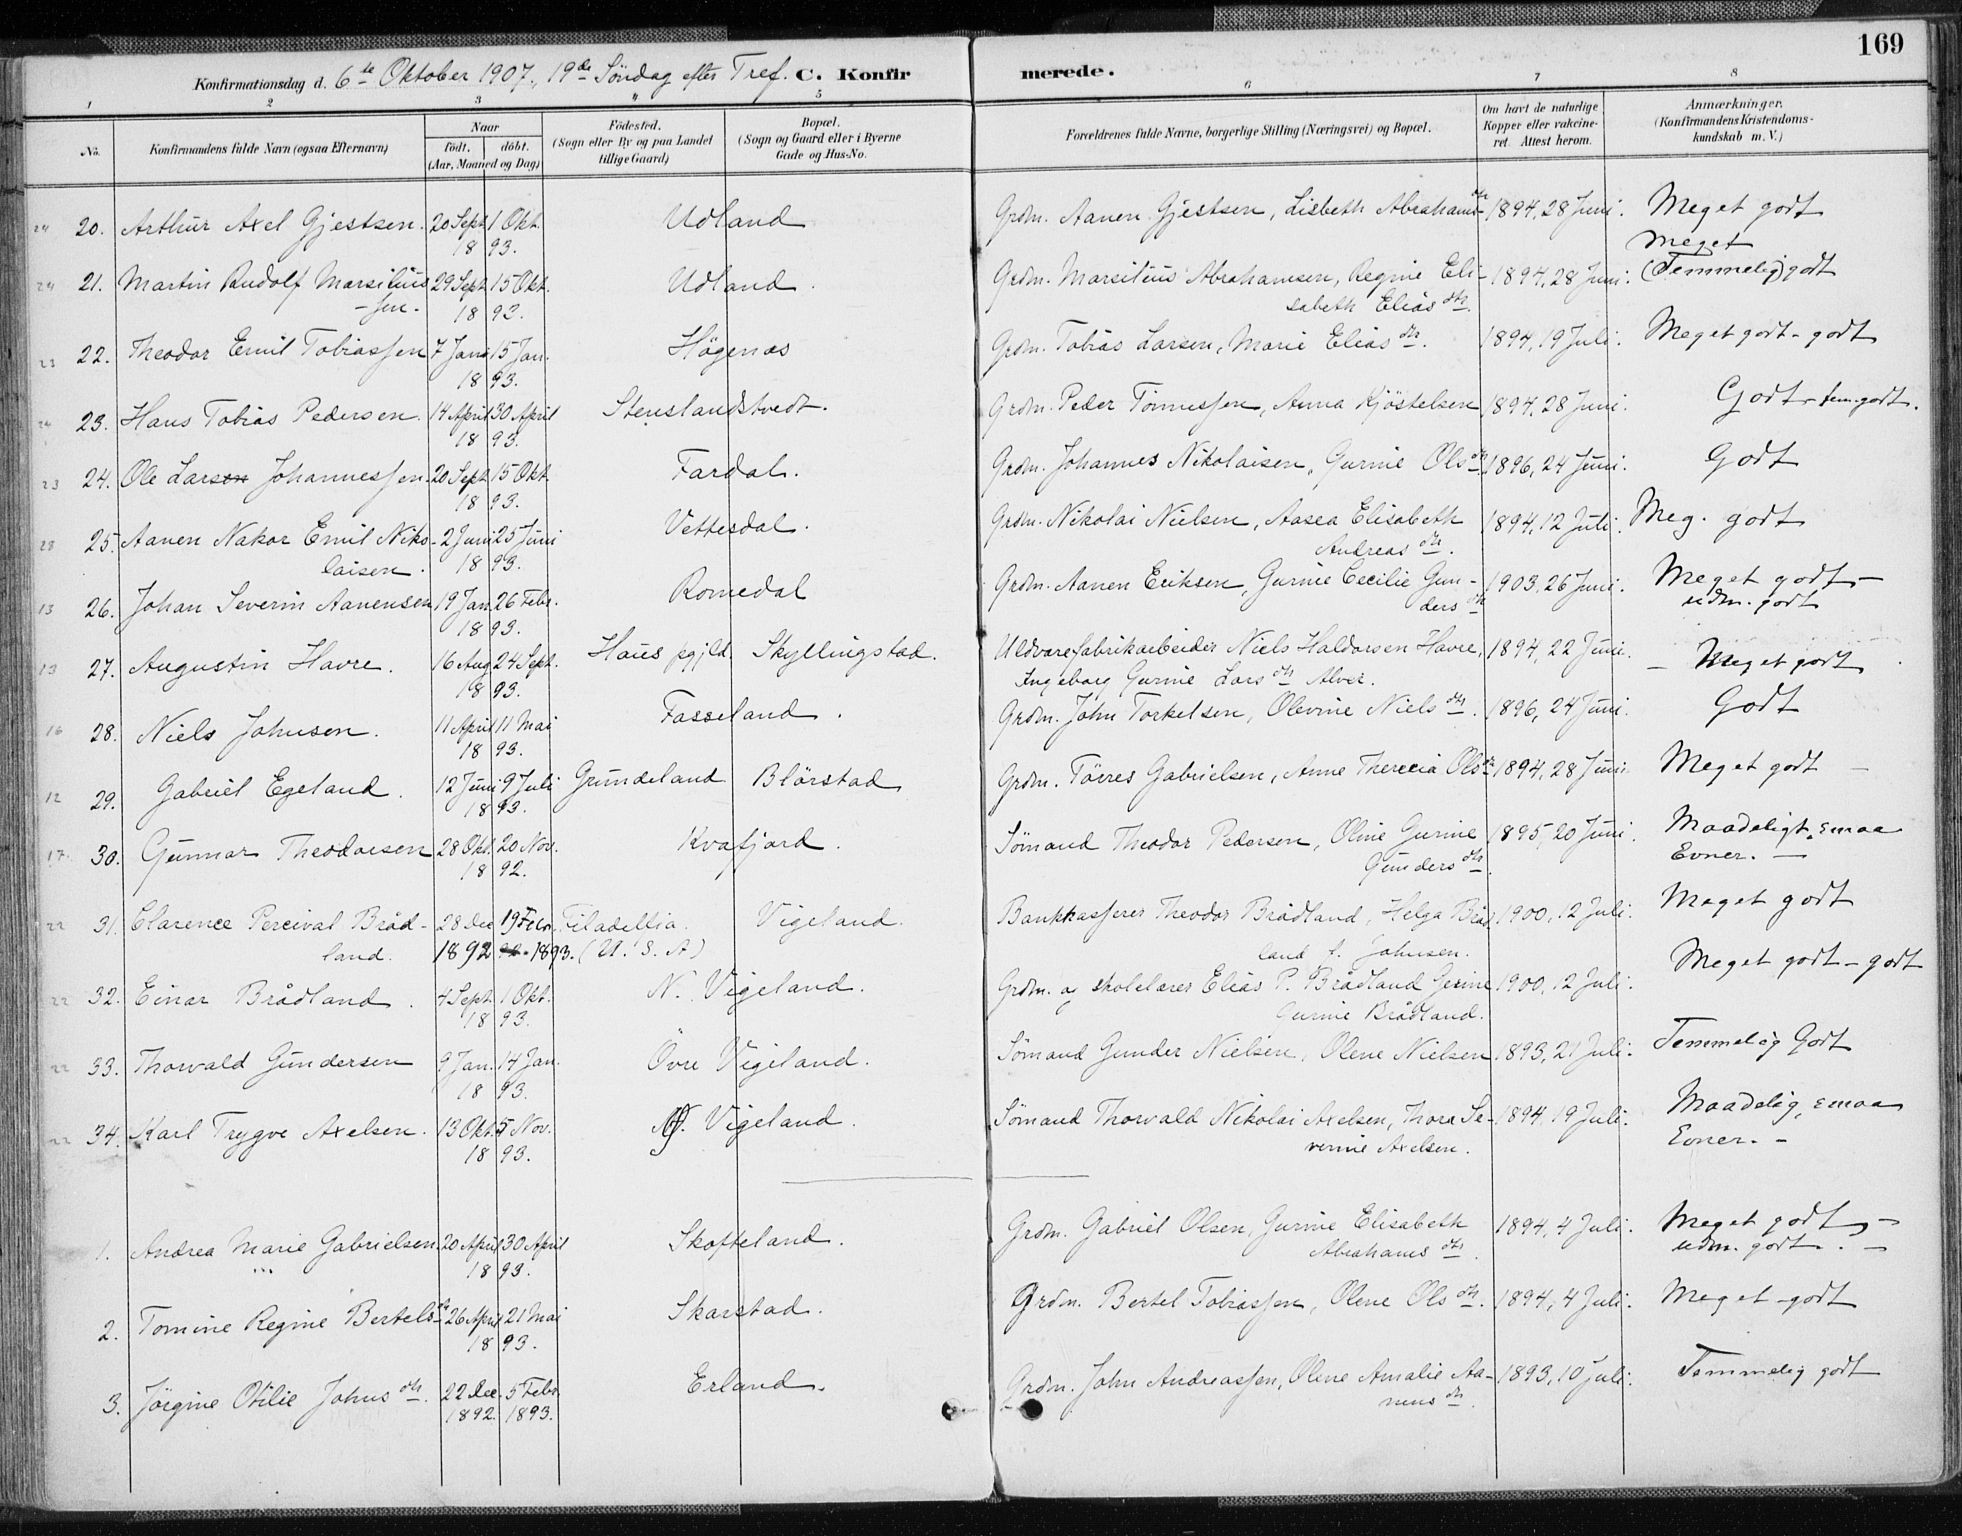 169
Konfirmationsdag d. 6te Oktober 1907, 19de Söndag efter Tref. C. Konfirmerede.
1 2 3 4 5 6 7 8
No. Konfirmandens fulde Navn (ogsaa Efternavn) Naar födt. döbt. (Aar, Maaned og Dag) Födested. (Sogn eller By og paa Landet tillige Gaard) Bopæl. (Sogn og Gaard eller i Byerne Gade og Hus-No. Forældrenes fulde Navne, borgerlige Stilling (Næringsvei) og Bopæl. Om havt de naturlige Kopper eller vakcineret. Attest herom. Anmærkninger. (Konfirmandens Kristendomskundskab m. V.)
24 20. Arthur Axel Gjestsen. 20 Sept. 1 Okt. Udland Grdm. Aanen Gjestsen, Lisbeth Abrahamsdtr 1894, 28 Juni. Meget godt
18 93.
Meget
24 21. Martin Rudolf Marsilius 29 Sept. 15 Okt. Udland. Grdm. Marsilius Abrahamsen, Regine Eli- 1894, 28 Juni. (Temmelig) godt
-sen. 18 93. sabeth Eliasdtr.
23 22. Theodor Emil Tobiassen 7 Jan. 15 Jan. Högenæs Grdm. Tobias Larsen, Marie Eliasdtr. 1894, 19 Juli. Meget godt - godt
18 93.
24 23. Hans Tobias Pedersen. 14 April 30 April Stenslandstvedt. Grdm. Peder Tönnessen, Anna Kjöstelsen 1894, 28 Juni. Godt - tem. godt.
18 93.
23 24. Ole Larson Johannessen. 20 Sept. 15 Okt. Fardal. Grdm. Johannes Nikolaisen, Gurine Olsdtr 1896, 24 Juni. Godt
18 93.
23 25. Aanen Nakor Emil Niko- 2 Juni 25 Juni Vettesdal. Grdm. Nikolai Nielsen, Aasea Elisabeth 1894, 12 Juli. Meg. godt
laisen. 18 93. Andreasdtr.
13 26. Johan Severin Aanensen 19 Jan. 26 Febr. Romedal Grdm. Aanen Eriksen, Gurine Cecilie Gun- 1903, 26 Juni. Meget godt -
18 93. dersdtr udm. godt
13 27. Augustin Havre. 16 Aug 24 Sept. Haus pgjld. Skyllingstad. Uldvarefabrikarbeider Niels Haldorsen Havre, 1894, 22 Juni. - Meget godt
18 93. Ingeborg Gurine Larsdtr Alver.
16 28. Niels Johnsen. 11 April 11 Mai Fasseland. Grdm. John Torkelsen, Olevine Nielsdtr. 1896, 24 Juni. Godt
18 93.
12 29. Gabriel Egeland. 12 Juni 9 Juli Grundeland Blörstad Grdm. Törres Gabrielsen, Anne Therecia Olsdtr 1894, 28 Juni. Meget godt -
18 93.
17. 30. Gunnar Theodorsen 28 Okt. 20 Nov. Kvafjord. Sömand Theodor Pedersen, Oline Gurine 1895, 20 Juni. Maadeligt. smaa
18 92. Gundersdtr. Evner. -
22 31. Clarence Percival Bråd- 28 Dec 19 Febr. Filadelfia. Vigeland. Bankkasserer Theodor Brådland, Helga Bråd 1900, 12 Juli. Meget godt
land. 1892 1893. (U. S. A) land f. Johnsen.
22 32. Einar Brådland. 4 Sept. 1 Okt. N. Vigeland. Grdm. og skolelærer Elias P. Brådland Gesine 1900, 12 Juli. Meget godt - godt
18 93. Gurine Brådland.
22 33. Thorvald Gundersen 9 Jan. 14 Jan. Övre Vigeland. Sömand Gunder Nielsen, Olene Nielsen 1893, 21 Juli. Temmelig Godt
18 93.
22 34. Karl Trygve Axelsen. 13 Okt. 5 Nov. Vigeland. Sömand Thorvald Nikolai Axelsen, Thora Se- 1894, 19 Juli. Maadelig, smaa
18 93. verine Axelsen. Evner. -
1. Andrea Marie Gabrielsen. 20 April 30 April Skofteland. Grdm. Gabriel Olsen, Gurine Elisabeth 1894, 4 Juli. Meget godt, -
18 93. Abrahamsdtr. udm. godt. -
2. Tomine Regine Bertelsdtr 26 April 21 Mai Skarstad. Grdm. Bertel Tobiassen, Olene Olsdtr. 1894, 4 Juli. Meget godt
18 93.
3. Jörgine Otilie Johnsdtr. 22 Dec. 5 Febr. Erland. Grdm. John Andreassen, Oline Amalie Aa- 1893, 10 Juli. Temmelig godt
1892. 1893. nensdtr.